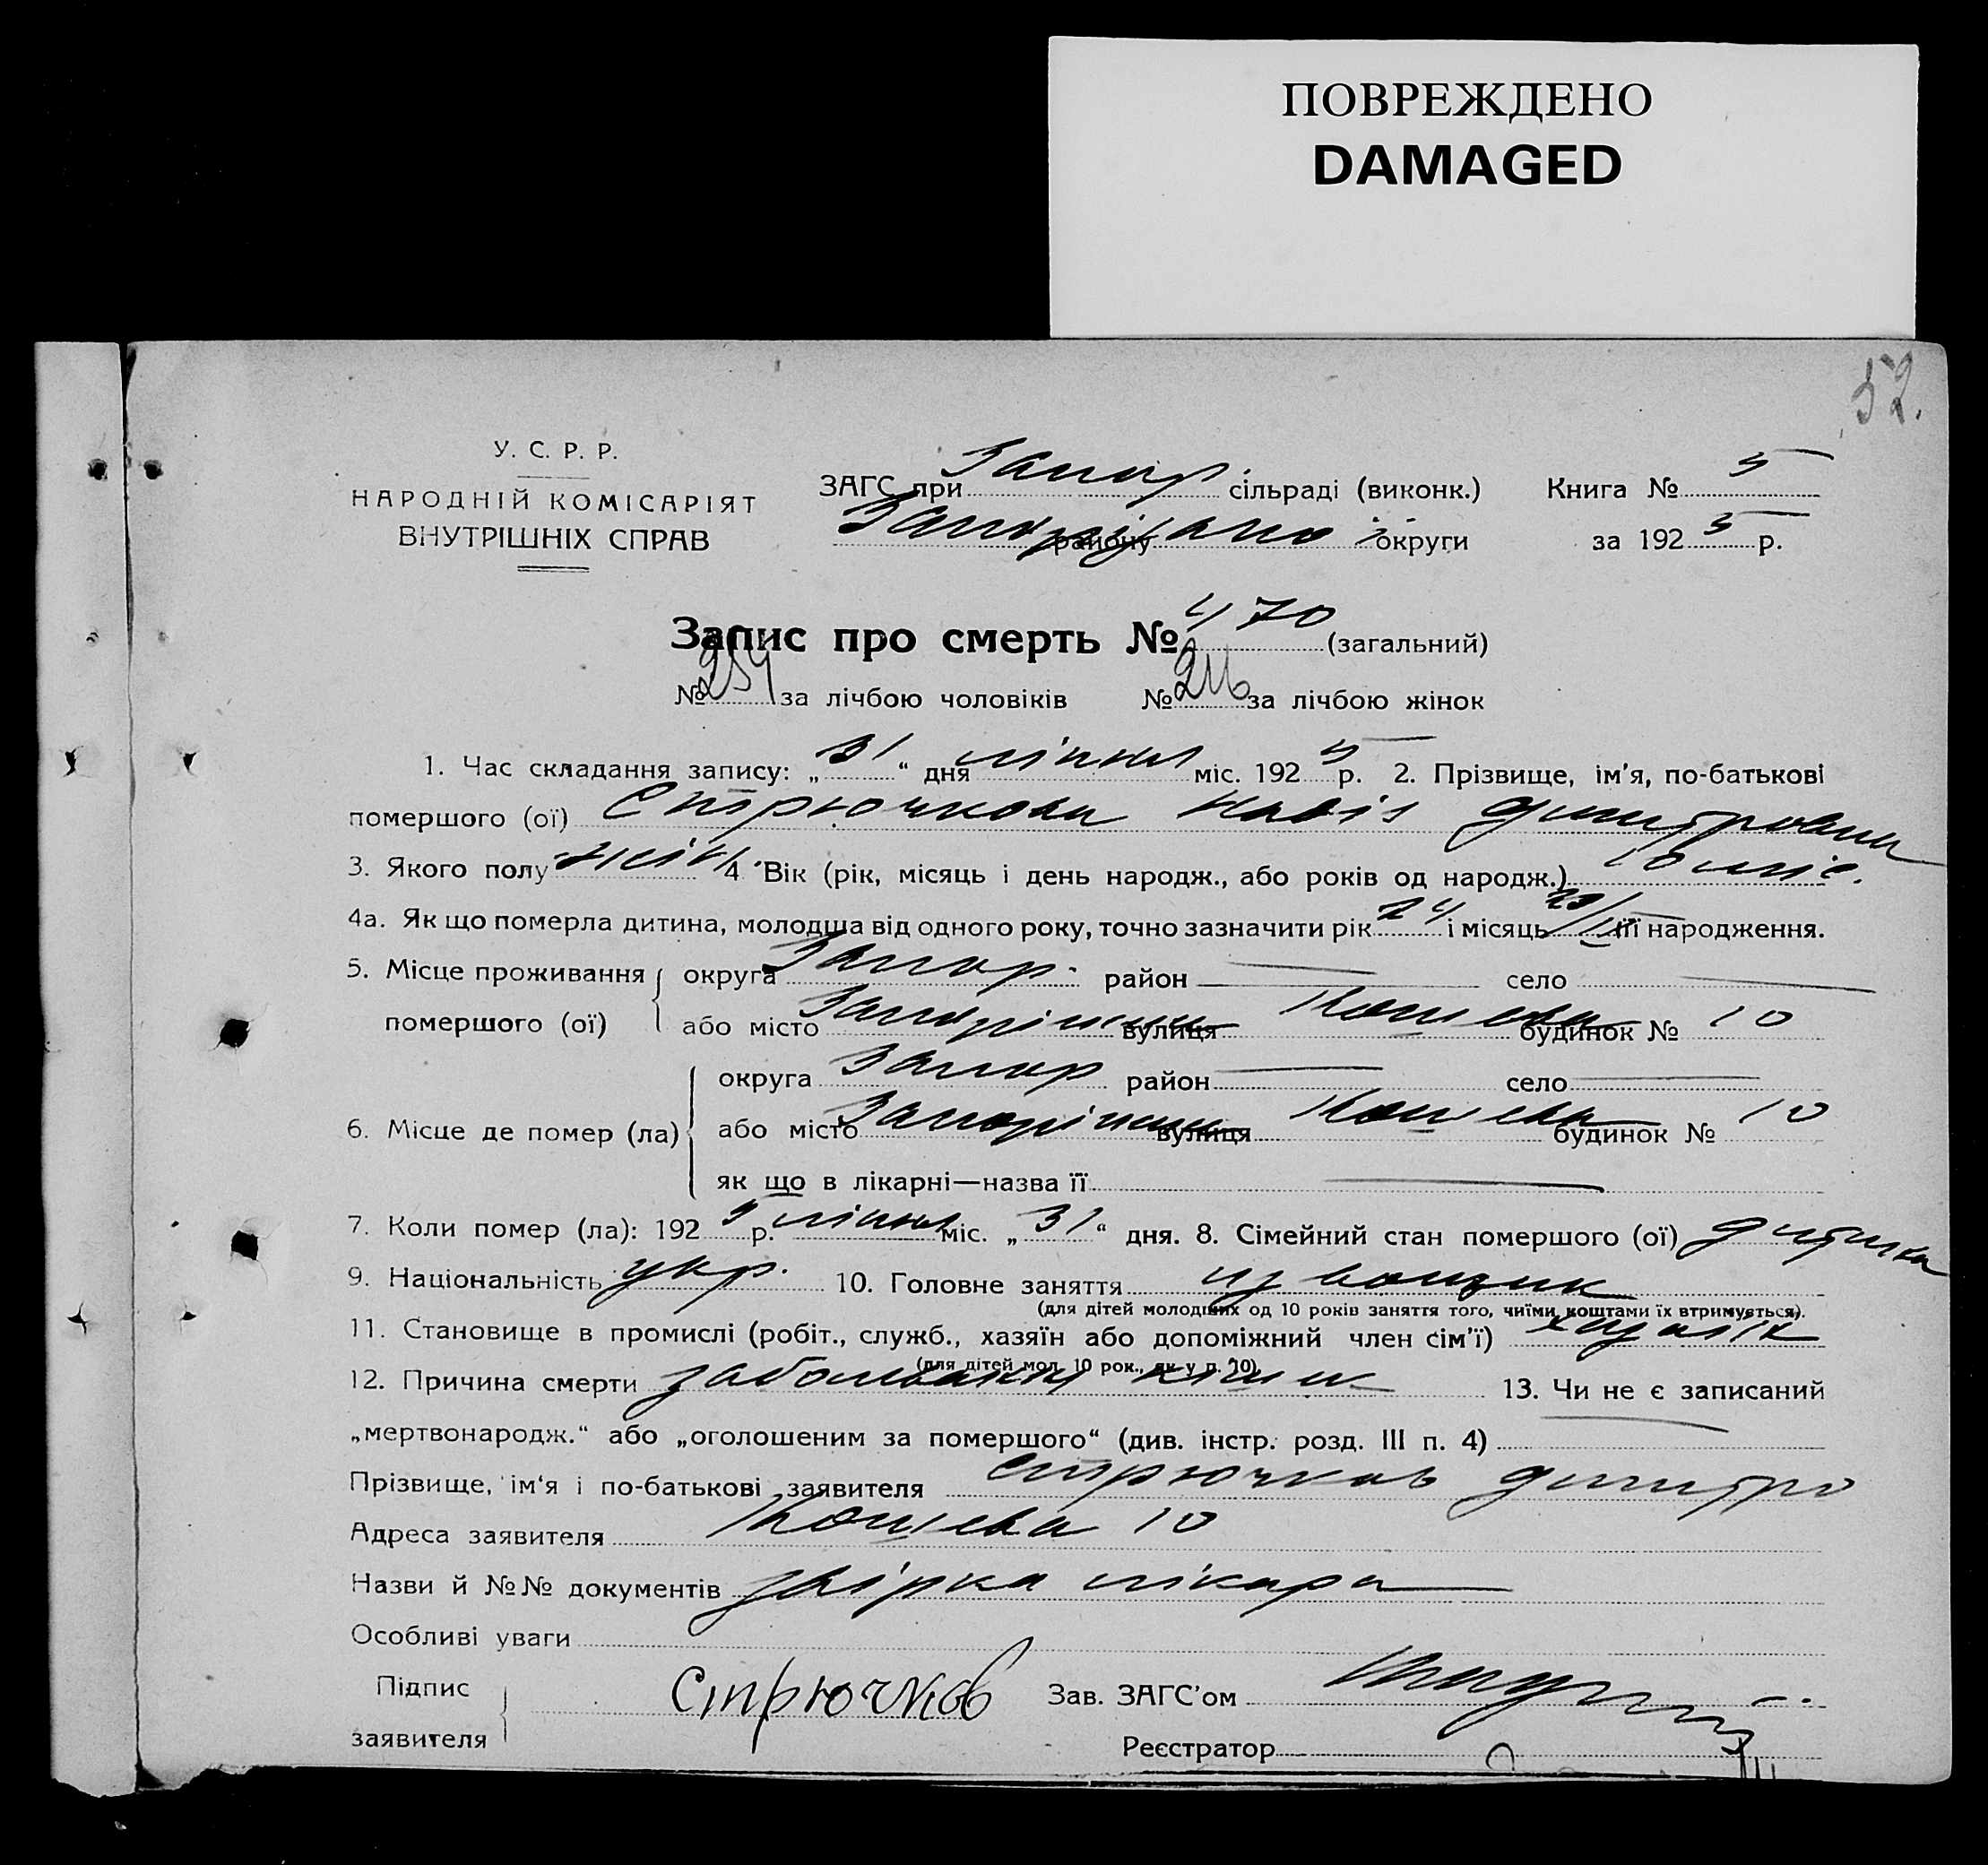 ПОВРЕЖДЕНО
DAMAGED
52.
У. С. Р. Р.
НАРОДНІЙ КОМІСАРІЯТ
ВНУТРІШНІХ СПРАВ
ЗАГС при Запор сільраді (виконк.) Книга № 5
району округи за 192 5 р.
Запис про смерть № 470 (загальний)
№ 254 за лічбою чоловіків № 216 за лічбою жінок
1. Час складання запису: „ 31 “ дня липня міс. 192 5 р. 2. Прізвище, ім’я, по-батькові
помершого (ої) Стрючкова Дмитровна
3. Якого полу жін 4. Вік (рік, місяць і день народж., або років од народж.) міс.
4а. Як що померла дитина, молодша від одного року, точно зазначити рік 24 і місяць її народження.
5. Місце проживання округа Запор. район — село —
помершого (ої) або місто Запоріжжя вулиця Кошева будинок № 10
округа Запор район — село —
6. Місце де помер (ла) або місто Запоріжжя вулиця Кошева будинок № 10
як що в лікарні—назва її —
7. Коли помер (ла): 192 5 р. липня міс. „ 31 “ дня. 8. Сімейний стан помершого (ої) дитина
9. Національність укр. 10. Головне заняття извощик
(для дітей молодших од 10 років заняття того, чиїми коштами їх втримується).
11. Становище в промислі (робіт., служб., хазяїн або допоміжний член сім’ї) хазяїн
(для дітей мол. 10 рок., як у п. 10).
12. Причина смерти заболівання кишок 13. Чи не є записаний
„мертвонародж.“ або „оголошеним за помершого“ (див. інстр. розд. III п. 4) —
Прізвище, ім‘я і по-батькові заявителя Стрючков Дмитро
Адреса заявителя Кошева 10
Назви й №№ документів лікаря
Особливі уваги
Підпис Стрючков Зав. ЗАГС’ом
заявителя Реєстратор